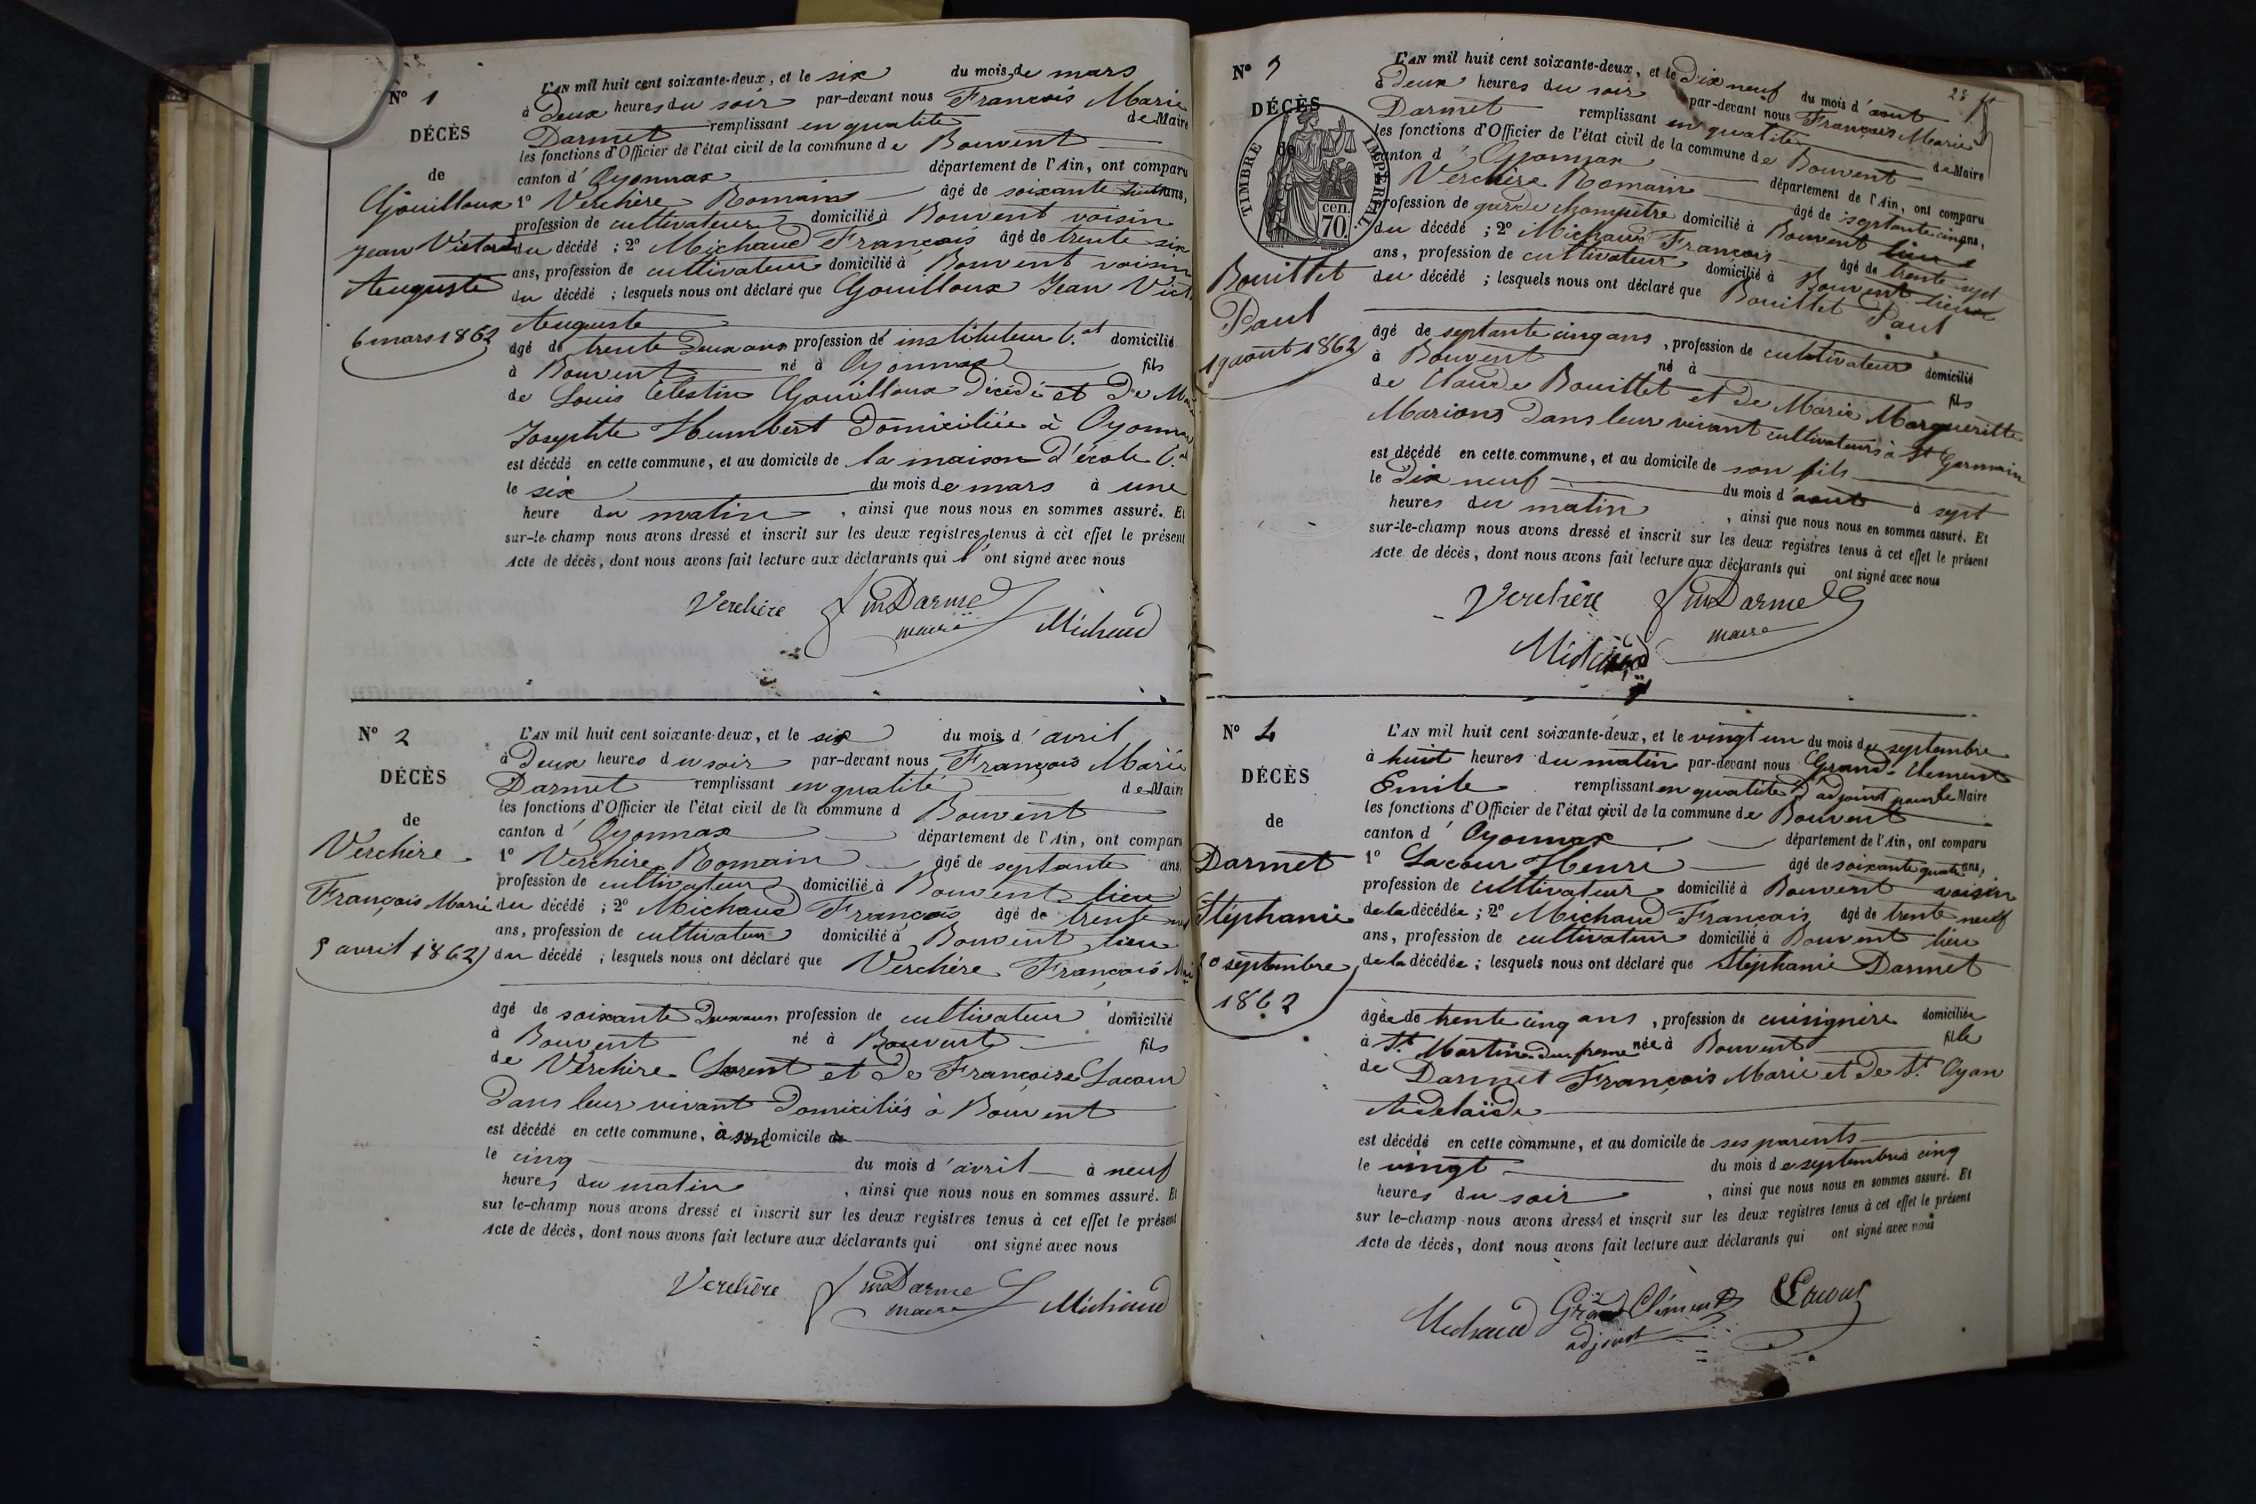 Nº 1
DÉCÈS
de
Gouilloux
Jean Victor
Auguste
6 mars 1862
L'AN mil huit cent soixante-deux, et le six du mois de mars
à Deux heures du soir par-devant nous François Marie
Darmet remplissant en qualité de Maire
les fonctions d'Officier de l'état civil de la commune de Bouvent
canton d'Oyonnax département de l'Ain, ont comparu
1º Verchère Romain âgé de soixante ans,
profession de cultivateur domicilié à Bouvent voisin
du décédé ; 2º Michaud François âgé de trente six
ans, profession de cultivateur domicilié à Bouvent voisin
du décédé ; lesquels nous ont déclaré que Gouilloux Jean Vict
Auguste
âgé de trente deux ans profession de instituteur C.al domicilié
à Bouvent né à Oyonnax fils
de Louis Célestin Gouilloux décédé et de M
Josephte Humbert domiciliée à Oyonnax
est décédé en cette commune, et au domicile de la maison d'école C.al
le six du mois de mars à une
heure du matin, ainsi que nous nous en sommes assuré. Et
sur-le-champ nous avons dressé et inscrit sur les deux registres tenus à cet effet le présent
Acte de décès, dont nous avons fait lecture aux déclarants qui l'ont signé avec nous
Verchère fm Darmet Michaud
maire
Nº 2
DÉCÈS
de
Verchère
François Marie
5 avril 1862
L'AN mil huit cent soixante-deux, et le six du mois d'avril
à Deux heures du soir par-devant nous François Marie
Darmet remplissant en qualité de Maire
les fonctions d'Officier de l'état civil de la commune d Bouvent
canton d'Oyonnax département de l'Ain, ont comparu
1º Verchère Romain âgé de septante ans,
profession de cultivateur domicilié à Bouvent lieu
du décédé ; 2º Michaud François âgé de trente neuf
ans, profession de cultivateur domicilié à Bouvent lieu
du décédé ; lesquels nous ont déclaré que Verchère François Mari
âgé de soixante deux ans, profession de cultivateur domicilié
à Bouvent né à Bouvent fils
de Verchère Lorent et de Françoise Lacour
dans leur vivant domiciliés à Bouvent
est décédé en cette commune, à son domicile de
le cinq du mois d'avril à neuf
heures du matin, ainsi que nous nous en sommes assuré. Et
sur le-champ nous avons dressé et inscrit sur les deux registres tenus à cet effet le présent
Acte de décès, dont nous avons fait lecture aux déclarants qui ont signé avec nous
Verchère fm Darmet Michaud
maire
Nº 3
DÉCÈS
de
TIMBRE IMPÉRIAL
70 cen.
Bouillet
Paul
19 août 1862
L'AN mil huit cent soixante-deux, et le Dix neuf du mois d'aout
à deux heures du soir par-devant nous François Marie
Darmet remplissant en qualité de Maire
les fonctions d'Officier de l'état civil de la commune de Bouvent
canton d'Oyonnax département de l'Ain, ont comparu
Verchère Romain âgé de septante cinq ans,
profession de garde champêtre domicilié à Bouvent lieu
du décédé ; 2º Michaud François âgé de trente sept
ans, profession de cultivateur domicilié à Bouvent lieu
du décédé ; lesquels nous ont déclaré que Bouillet Paul
âgé de septante cinq ans, profession de cultivateur domicilié
à Bouvent né à fils
de Claude Bouillet et de Marie Marguerite
Marions dans leur vivant cultivateurs à St Germain
est décédé en cette commune, et au domicile de son fils
le Dix neuf du mois d'aout à sept
heures du matin, ainsi que nous nous en sommes assuré. Et
sur-le-champ nous avons dressé et inscrit sur les deux registres tenus à cet effet le présent
Acte de décès, dont nous avons fait lecture aux déclarants qui ont signé avec nous
Verchère fm Darmet
maire
Michaud
Nº 4
DÉCÈS
de
Darmet
Stéphanie
20 septembre
1862
L'AN mil huit cent soixante-deux, et le vingt un du mois de septembre
à huit heures du matin par-devant nous Grand-Clément
Emile remplissant en qualité d'adjoint pour le Maire
les fonctions d'Officier de l'état civil de la commune de Bouvent
canton d'Oyonnax département de l'Ain, ont comparu
1º Lacour Henri âgé de soixante quatre ans,
profession de cultivateur domicilié à Bouvent voisin
de la décédée ; 2º Michaud François âgé de trente neuf
ans, profession de cultivateur domicilié à Bouvent lieu
de la décédée ; lesquels nous ont déclaré que Stéphanie Darmet
âgée de trente cinq ans, profession de cuisignère domiciliée
à St Martin du fresne née à Bouvent fille
de Darmet François Marie et de St Oyan
Adelaïde
est décédé en cette commune, et au domicile de ses parents
le vingt du mois de septembre à cinq
heures du soir, ainsi que nous nous en sommes assuré. Et
sur le-champ nous avons dressé et inscrit sur les deux registres tenus à cet effet le présent
Acte de décès, dont nous avons fait lecture aux déclarants qui ont signé avec nous
Michaud Grand Clément Lacour
adjoint